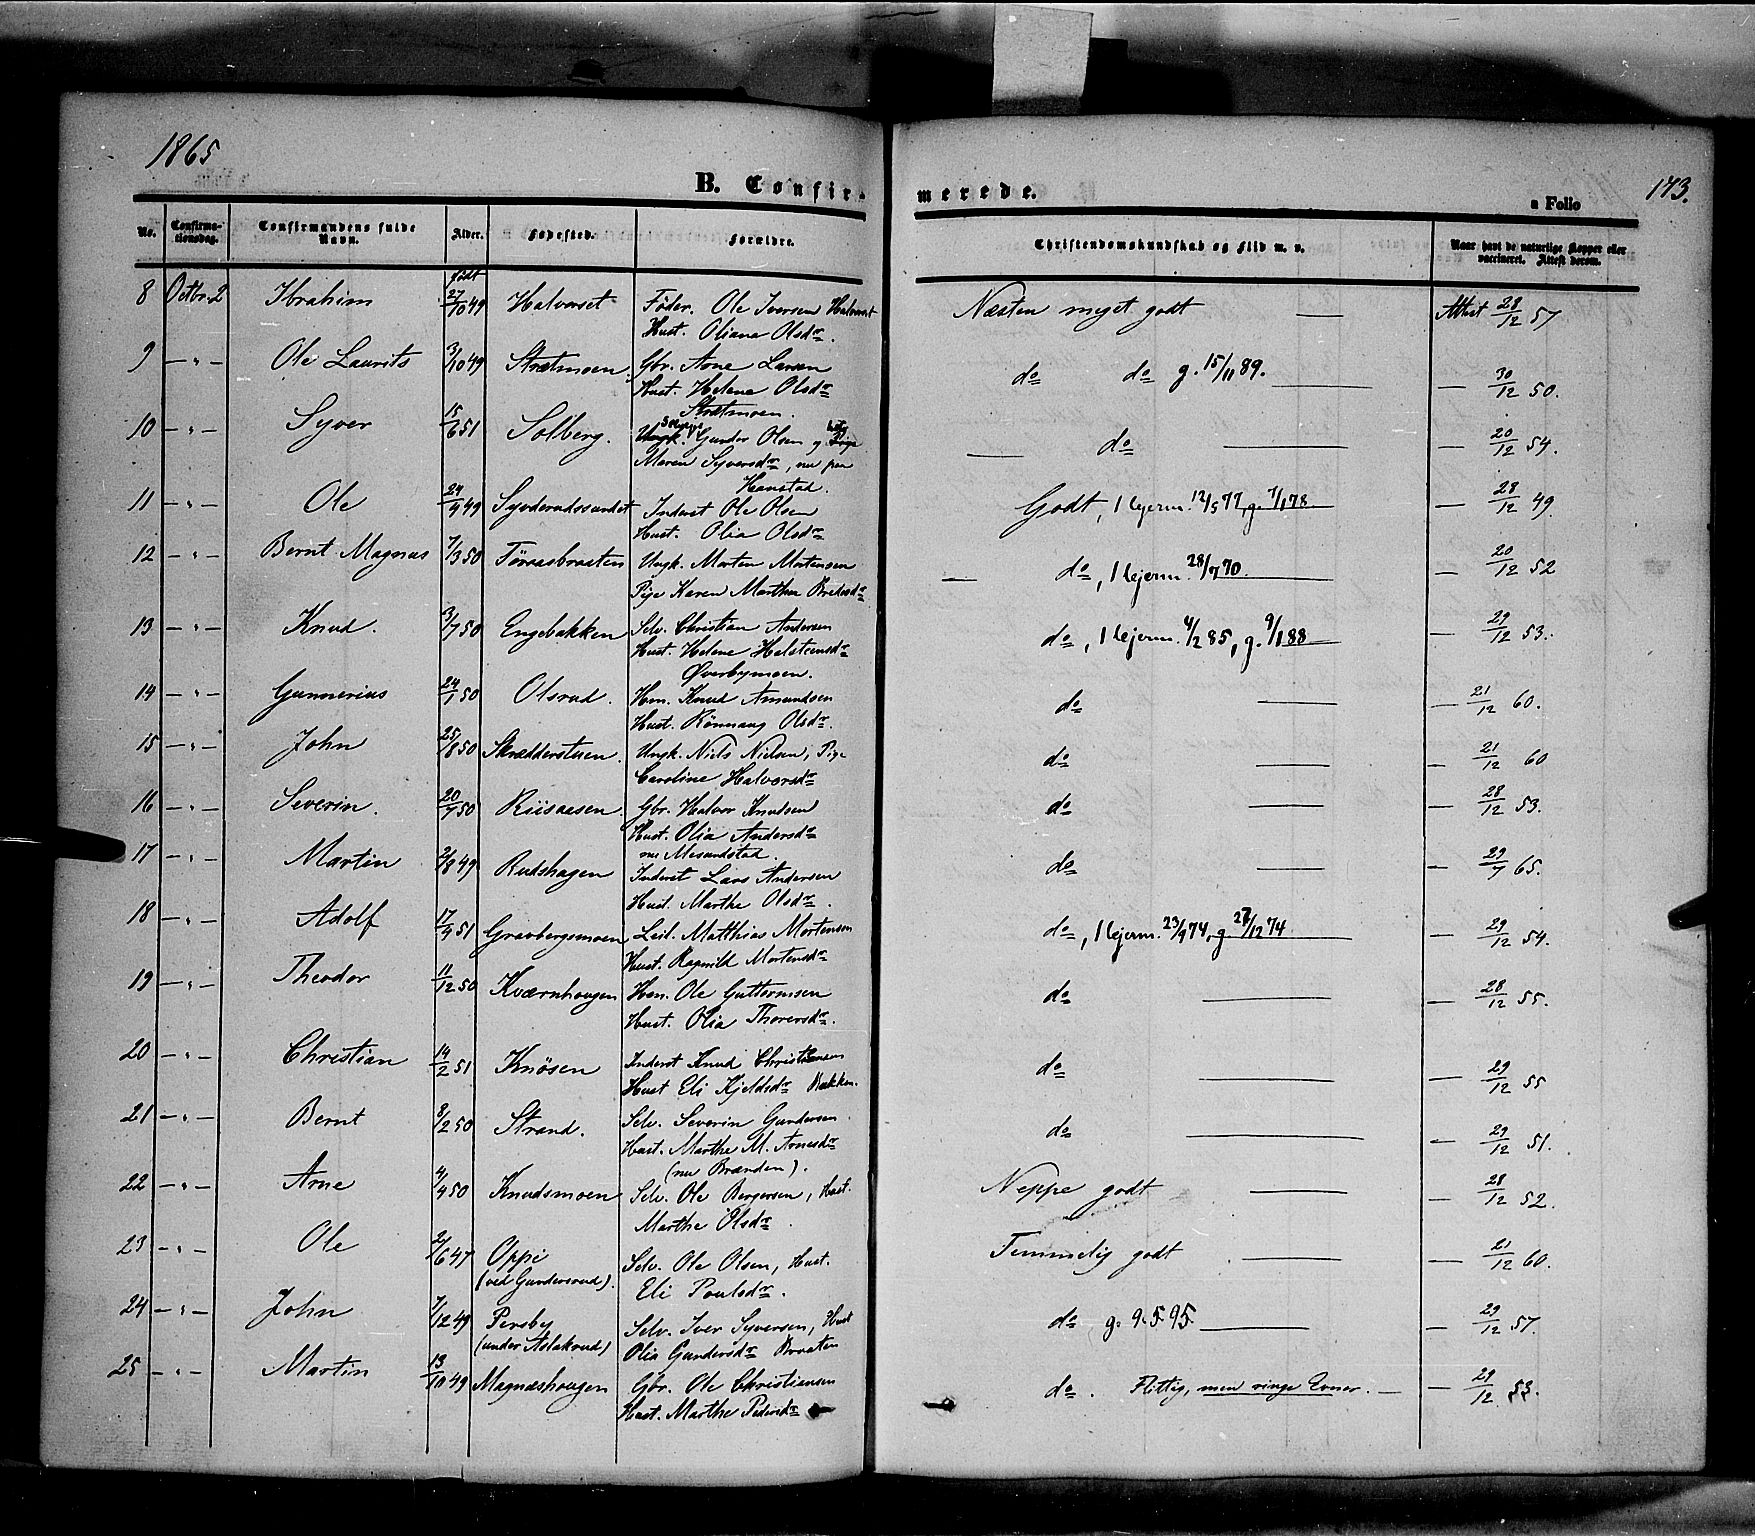 1865
B. Confirmerede.
a Folio 173.
No. Confirmationsdag. Confirmandens fulde Navn. Alder. Fødested. Forældre. Christendomskundskab og Flid m. v. Naar havt de naturlige Kopper eller vaccineret. Attest derom.
født
8 Octbr 2 Ibrahim 27/10 49 Halvorset Føder. Ole Iversen Halvorset Næsten meget godt — Attest 28/12 57
Hust. Oliana Olsdr.
9 — " — Ole Laurits 3/10 49 Strætmoen Gbr. Arne Larsen do do g. 15/11 89. — 30/12 50.
Hust. Helene Olsdr
Strætmoen.
10 — " — Syver 15/6 51 Solberg. Ungk. Gunder Olsen og Pige — do — 20/12 54.
Maren Syversdr, nu paa
Hanstad.
11 — " — Ole 24/4 49 Synderudssundet Inderst Ole Olsen Godt, 1 lejerm. 12/5 77, g. 7/1 78 — 28/12 49.
Hust. Olia Olsdr
12 — " — Bernt Magnus 7/3 50 Føraasbraaten Ungk. Morten Mortensen — do, 1 lejerm. 28/7 70. — 20/12 52
Pige Karen Marthea Bredesdr
13 — " — Knud. 3/7 50 Engebakken Selv. Christian Andersen do, 1 lejerm. 4/2 85, g. 9/1 88 — 29/12 53.
Hust. Helene Halsteinsdr
Øverbymoen.
14 — " — Gunnerius 24/1 50 Olsrud. Hm. Knud Amundsen do — 21/12 60.
Hust. Rønnaug Olsdr.
15 — " — John 25/8 50 Skrædderstuen. Ungk. Niels Nielsen, Pige do — 21/12 60
Caroline Halvorsdr
16 — " — Severin. 20/7 50 Riisaasen Gbr. Halvor Knudsen do — 28/12 53.
Hust. Olia Andersdr
nu Mesundstad.
17 — " — Martin 2/8 49 Rudshagen Inderst Lars Andersen do — 29/7 65.
Hust. Marthe Olsdr.
18 — " — Adolf 17/9 51 Gravbergsmoen Leil. Matthias Mortensen do, 1 lejerm. 23/9 74, g. 27/12 74 — 29/12 54.
Hust. Ragnild Mortensdr
19 — " — Theodor 11/12 50 Kværnhougen Hm. Ole Guttormsen do — 28/12 55.
Hust. Olia Thorersdr.
20 — " — Christian 14/2 51 Knösen Inderst Knud Christiansen do — 29/12 55
Hust Eli Kjeldsdr Bakken.
21 — " — Bernt 8/2 50 Strand. Selv. Severin Gundersen do — 29/12 51.
Hust. Marthe M. Arnesdr
(nu Brænden).
22 — " — Arne 4/4 50 Knudsmoen Selv. Ole Bergersen, Hust. Neppe godt — 28/12 52.
Marthe Olsdr.
23 — " — Ole 2/6 47 Oppi Selv. Ole Olsen, Hust. Temmelig godt — 21/12 60.
(ved Gundersrud). Eli Poulsdr.
24 — " — John 7/12 49 Persby Selv. Iver Syversen, Hust do g. 9.5.95. — 29/12 57.
(under Aslakrud) Olia Gundersdr Braaten
25 — " — Martin 13/10 49 Magnæshougen Gbr. Ole Christiansen do. Flittig, men ringe Evner. — 29/12 53.
Hust. Marthe Pedersdr